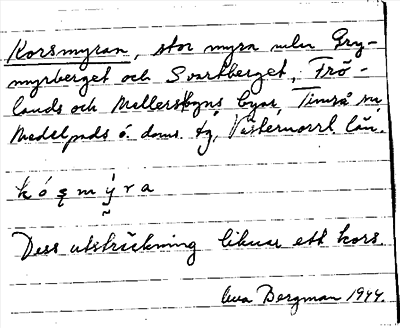 Korsmyran, stor myra mln Gry-
myrberget och Svartberget, Frö-
lands och Mellerstbyns byar, Timrå sn,
Medelpads ö. doms. tg, Västernorrl. län.
kósmýra
Dess utsträckning liknar ett kors.
Bergman 1944.